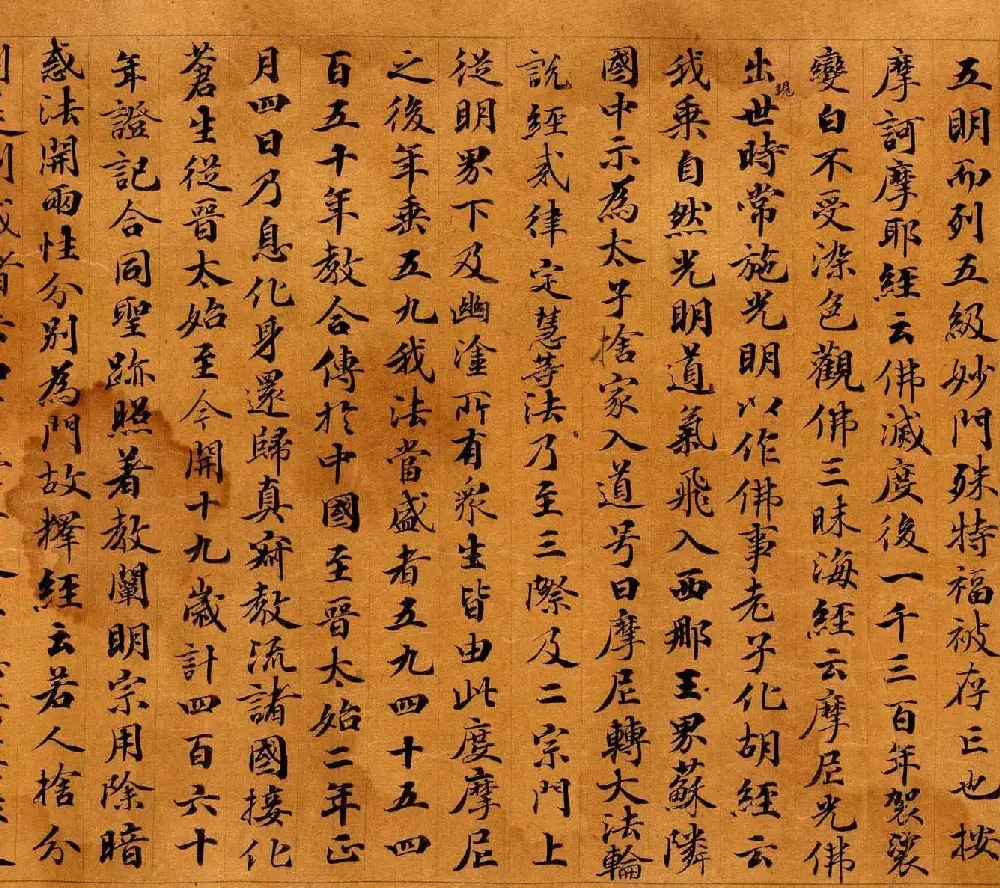 五明而列五級妙門殊特福被存亡也按
摩訶摩耶經云佛滅度後一千三百年袈裟
變白不受染色觀佛三昧海經云摩尼光佛
出現世時常施光明以作佛事老子化胡經云
我乘自然光明道氣飛入西那玉界蘇隣
國中示為太子捨家入道号曰摩尼轉大法輪
說經戒律定慧等法乃至三際及二宗門上
從明界下及幽塗所有衆生皆由此度摩尼
之後年垂五九我法當盛者五九四十五四
百五十年教合傳於中國至晉太始二年正
月四日乃息化身還歸真寂教流諸國接化
蒼生從晉太始至今開十九歲計四百六十
年證記合同聖跡照著教闡明宗用除暗
惑法開兩性分別為門故釋經云若人捨分